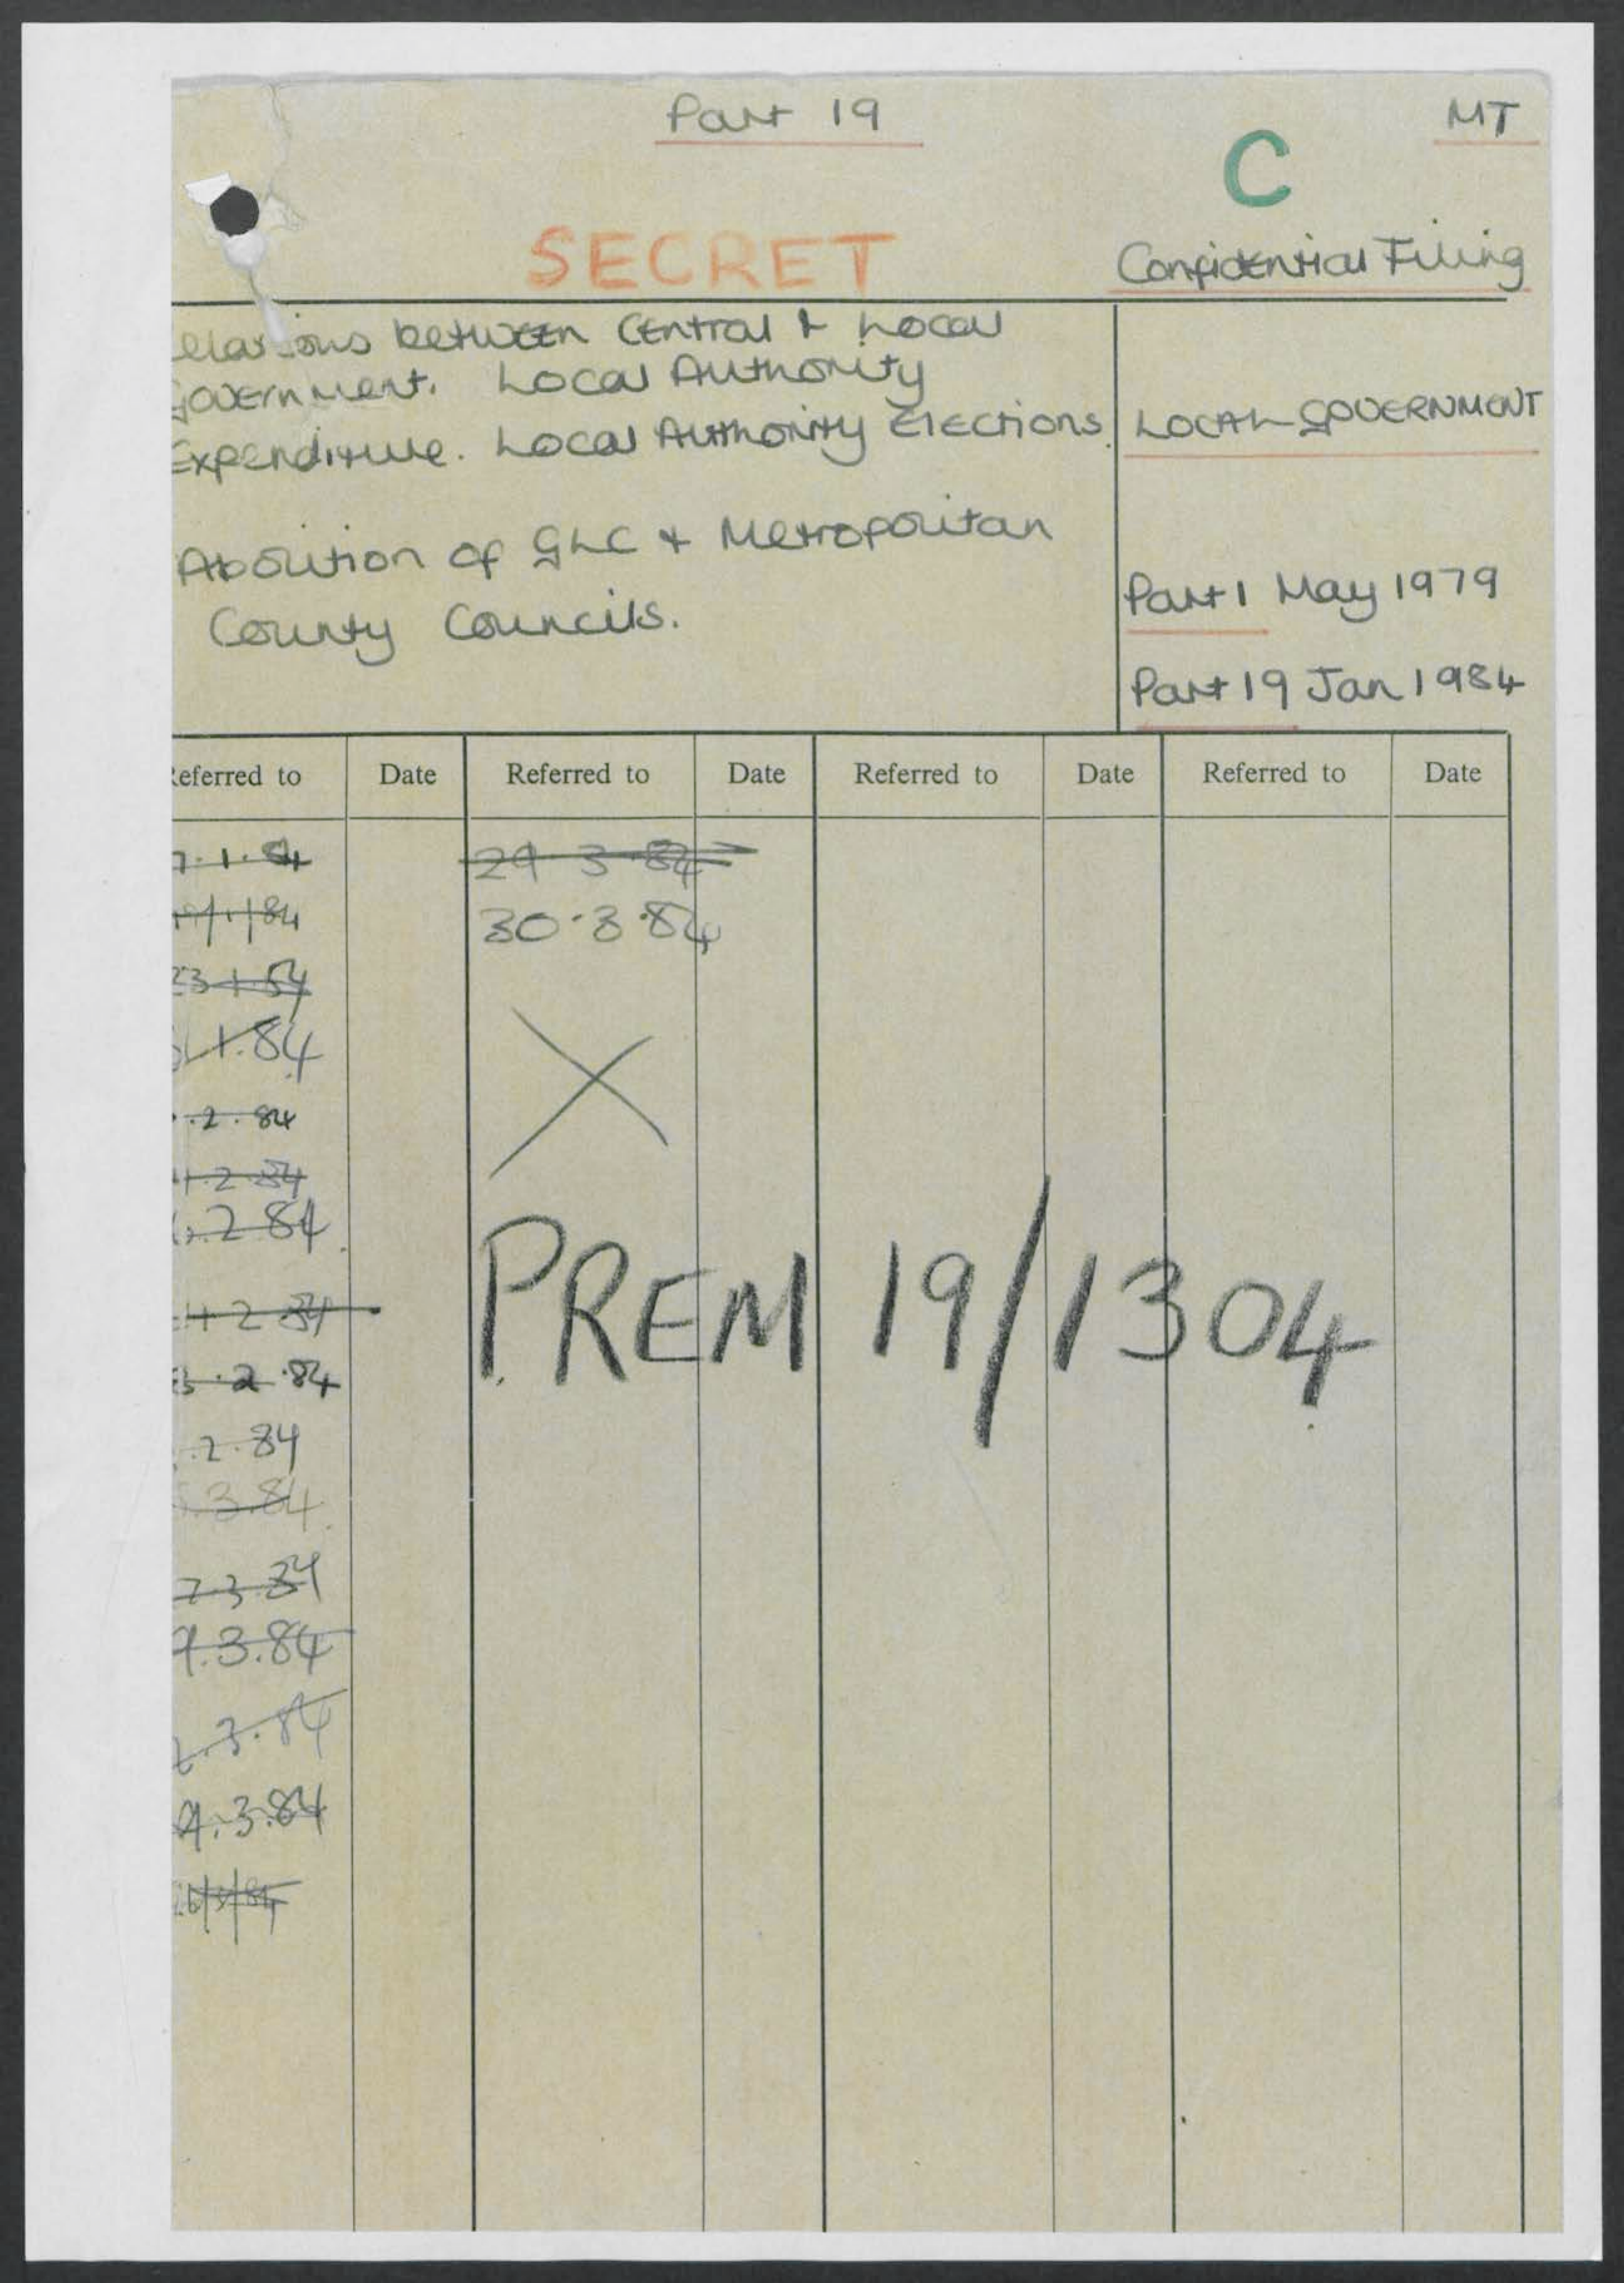 Part 19
MT
C
SECRET
Confidential Filing
elations between Central & Local
Government. Local Authority
Expenditure. Local Authority Elections.
LOCAL GOVERNMENT
Abolition of GLC + Metropolitan
County Councils.
Part 1 May 1979
Part 19 Jan 1984
eferred to Date Referred to Date Referred to Date Referred to Date
7.1.84 29.3.84
/1/84 30.3.84
23.1.84
1.84
.2.84
2.84
.2.84
PREM 19/1304
2.84
3.2.84
.2.84
.3.84
7.3.84
9.3.84
.3.84
9.3.84
6/3/84